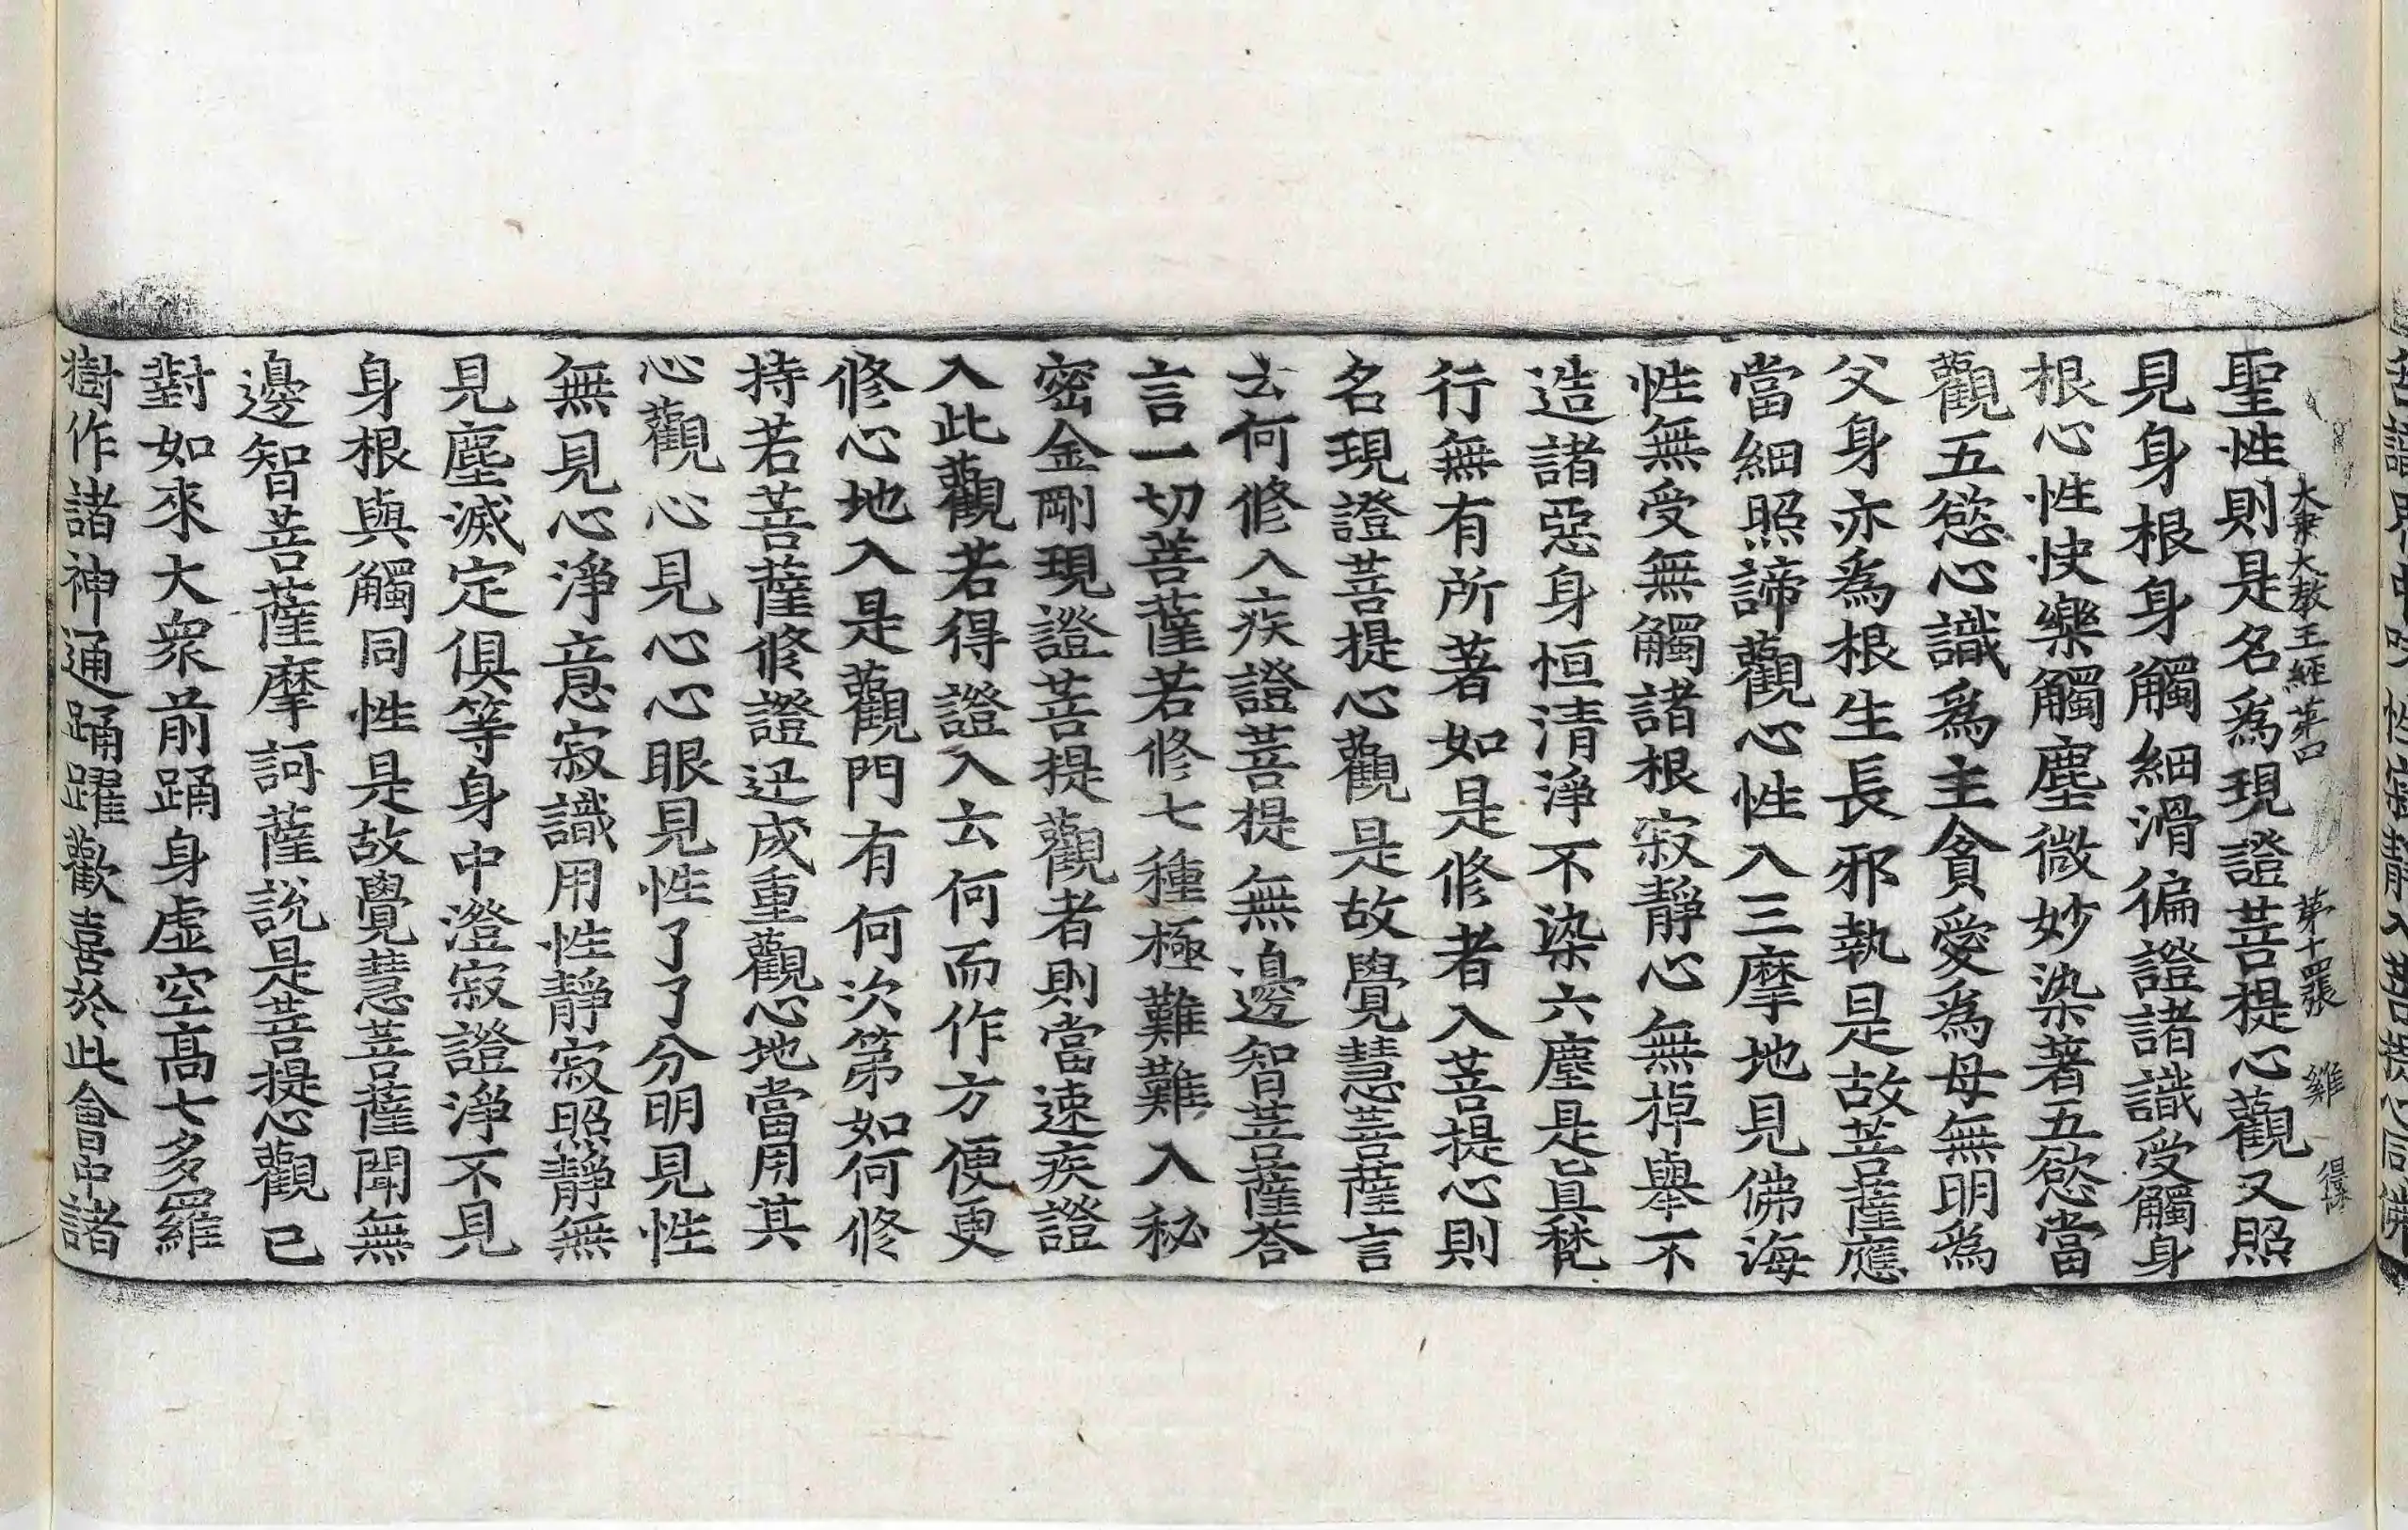 大乘大敎王經第四 第十四張 維
聖性則是名爲現證菩提心觀又照
見身根身觸細滑徧證諸識受觸身
根心性快樂觸塵微妙染著五慾當
觀五慾心識爲主貪愛爲母無明爲
父身亦爲根生長邪執是故菩薩應
當細照諦觀心性入三摩地見佛海
性無受無觸諸根寂靜心無掉擧不
造諸惡身恒清淨不染六塵是眞梵
行無有所著如是修者入菩提心則
名現證菩提心觀是故覺慧菩薩言
去何修入疾證菩提無邊智菩薩荅
言一切菩薩若修七種極難難入秘
密金剛現證菩提觀者則當速疾證
入此觀若得證入去何而作方便更
修心地入是觀門有何次第如何修
持若菩薩修證迅成重觀心地當用其
心觀心見心心眼見性了了分明見性
無見心淨意寂識用性靜寂照靜無
見塵滅定俱等身中澄寂證淨不見
身根與觸同性是故覺慧菩薩聞無
邊智菩薩摩訶薩說是菩提心觀已
對如來大衆前踊身虛空高七多羅
樹作諸神通踊躍歡喜於此會中諸